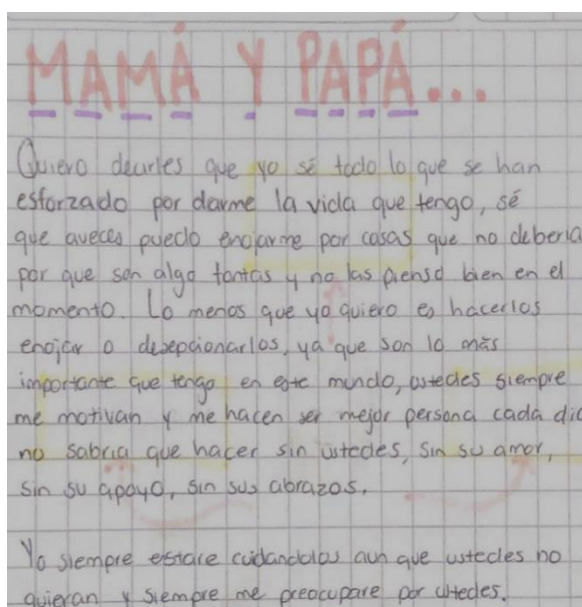 MAMÁ Y PAPÁ...
Quiero decirles que yo sé todo lo que se han
esforzado por darme la vida que tengo, sé
que aveces puedo enojarme por cosas que no deberia
por que son algo tontas y no las pienso bien en el
momento. Lo menos que yo quiero es hacerlos
enojar o desepcionarlos, ya que son lo más
importante que tengo en este mundo, ustedes siempre
me motivan y me hacen ser mejor persona cada dia
no sabria que hacer sin ustedes, sin su amor,
sin su apoyo, sin sus abrazos.
Yo siempre estare cuidandolos aun que ustedes no
quieran y siempre me preocupare por ustedes.